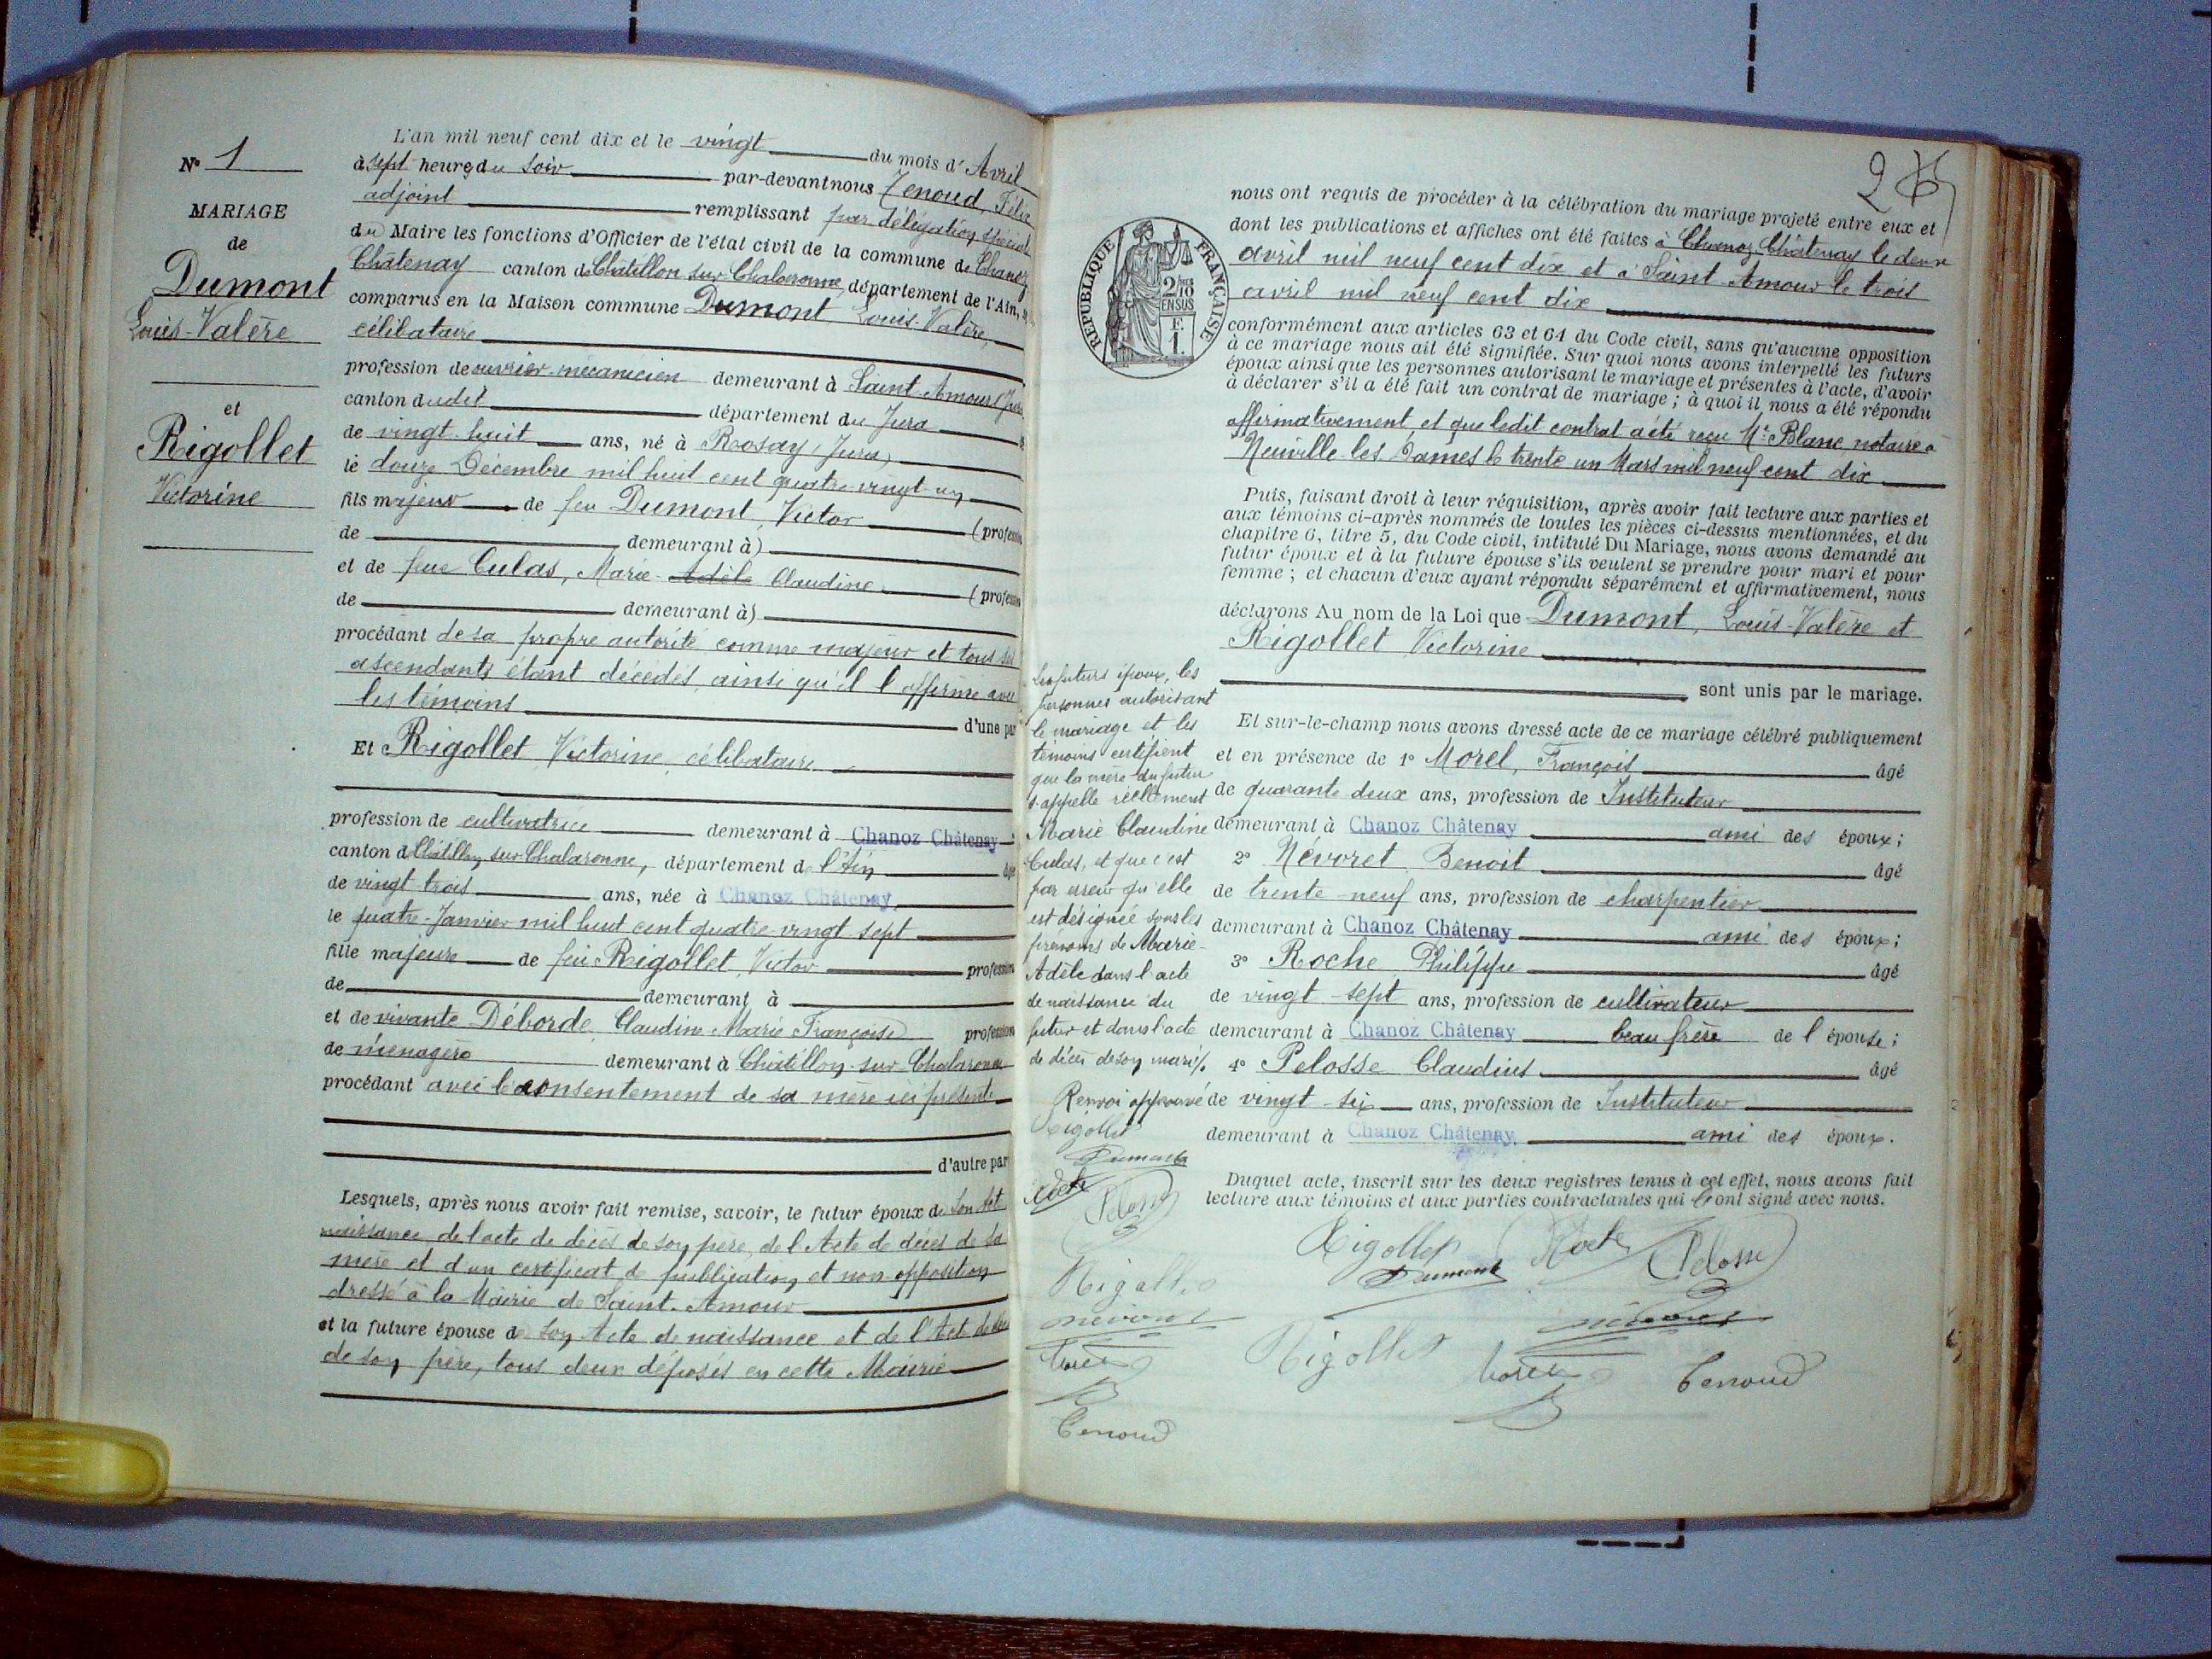 N° 1
MARIAGE
de
Dumont
Louis-Valère
et
Rigollet
Victorine
L'an mil neuf cent dix et le vingt du mois d'Avril
à sept heures du soir par-devant nous Tenoud, Félix
adjoint remplissant par délégation spéciale
du Maire les fonctions d'Officier de l'état civil de la commune de Chanoz
Châtenay canton de Châtillon sur Chalaronne, département de l'Ain,
comparus en la Maison commune Dumont, Louis-Valère,
célibataire
profession de ouvrier-mécanicien demeurant à Saint-Amour (Jura
canton dudit département du Jura
de vingt-huit ans, né à Rosay (Jura)
le douze Décembre mil huit cent quatre-vingt-un
fils majeur de feu Dumont, Victor (profession
de demeurant à)
et de feue Culas, Marie-Adèle Claudine (profession
de demeurant à)
procédant de sa propre autorité comme majeur et tous ses
ascendants étant décédés, ainsi qu'il l'affirme avec
les témoins d'une par
Et Rigollet Victorine, célibataire
profession de cultivatrice demeurant à Chanoz Châtenay
canton de Châtillon sur Chalaronne, département de l'Ain
de vingt trois ans, née à Chanoz Châtenay
le quatre Janvier mil huit cent quatre-vingt-sept
fille majeure de feu Rigollet, Victor profession
de demeurant à
et de vivante Déborde, Claudine Marie Françoise profession
de ménagère demeurant à Châtillon-sur-Chalaronne
procédant avec le consentement de sa mère ici présente
d'autre par
Lesquels, après nous avoir fait remise, savoir, le futur époux de son Act
naissance de l'acte de décès de son père, de l'Acte de décès de sa
mère et d'un certificat de publication et non opposition
dressé à la Mairie de Saint-Amour
et la future épouse de son Acte de naissance et de l'Act de décès
de son père, tous deux déposés en cette Mairie
REPUBLIQUE FRANÇAISE
2/10
EN SUS
F.
1.
nous ont requis de procéder à la célébration du mariage projeté entre eux et
dont les publications et affiches ont été faites à Chanoz Châtenay le deux
avril mil neuf cent dix et à Saint-Amour le trois
avril mil neuf cent dix
conformément aux articles 63 et 64 du Code civil, sans qu'aucune opposition
à ce mariage nous ait été signifiée. Sur quoi nous avons interpellé les futurs
époux ainsi que les personnes autorisant le mariage et présentes à l'acte, d'avoir
à déclarer s'il a été fait un contrat de mariage ; à quoi il nous a été répondu
affirmativement et que ledit contrat a été reçu Me Blanc, notaire à
Neuville-les-Dames le trente un Mars mil neuf cent dix
Puis, faisant droit à leur réquisition, après avoir fait lecture aux parties et
aux témoins ci-après nommés de toutes les pièces ci-dessus mentionnées, et du
chapitre 6, titre 5, du Code civil, intitulé Du Mariage, nous avons demandé au
futur époux et à la future épouse s'ils veulent se prendre pour mari et pour
femme ; et chacun d'eux ayant répondu séparément et affirmativement, nous
déclarons Au nom de la Loi que Dumont, Louis-Valère et
Rigollet Victorine
sont unis par le mariage.
Et sur-le-champ nous avons dressé acte de ce mariage célébré publiquement
et en présence de 1° Morel, François âgé
de quarante deux ans, profession de Instituteur
demeurant à Chanoz Châtenay ami des époux ;
2° Névoret Benoit âgé
de trente-neuf ans, profession de charpentier
demeurant à Chanoz Châtenay ami des époux ;
3° Roche Philippe âgé
de vingt-sept ans, profession de cultivateur
demeurant à Chanoz Châtenay beau frère de l'épouse ;
4° Pelosse Claudius âgé
de vingt-six ans, profession de Instituteur
demeurant à Chanoz Châtenay ami des époux.
Duquel acte, inscrit sur les deux registres tenus à cet effet, nous avons fait
lecture aux témoins et aux parties contractantes qui ont signé avec nous.
Rigollet Roche Pelosse
Dumont
Rigollet Morel Tenoud
Les futurs époux, les
personnes autorisant
le mariage et les
témoins certifient
que la mère du futur
s'appelle réellement
Marie Claudine
Culas, et que c'est
par erreur qu'elle
est désignée sous les
prénoms de Marie-
Adèle dans l'acte
de naissance du
futur et dans l'acte
de décès de son mari
Renvoi approuvé
Rigollet
Dumont
Roche
Pelosse
Rigollet
Névoret
Morel
Tenoud